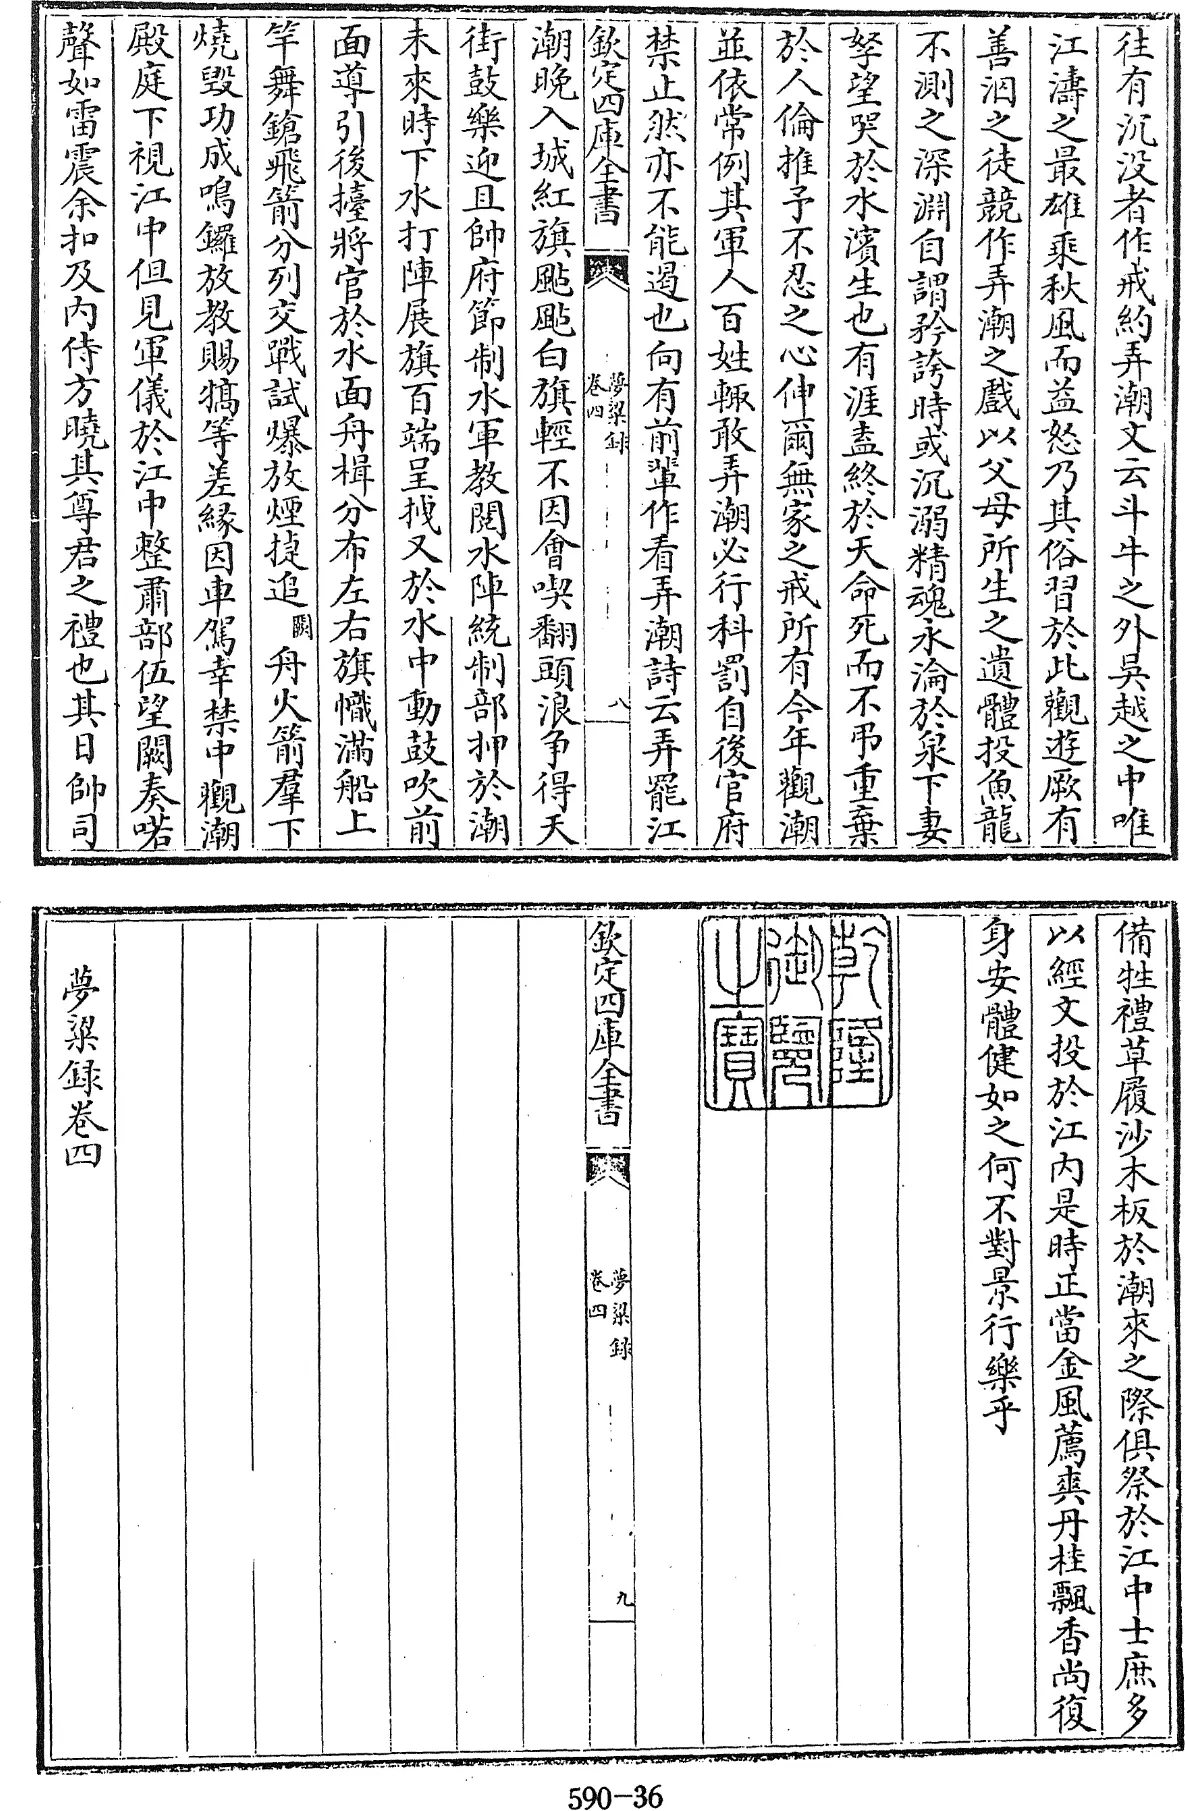 往有沉没者作戒約弄潮文云斗牛之外吳越之中唯
江濤之最雄乘秋風而益怒乃其俗習於此觀遊厥有
善泅之徒競作弄潮之戲以父母所生之遺體投魚龍
不測之深淵自謂矜誇時或沉溺精魂永淪於泉下妻
孥望哭於水濱生也有涯盍終於天命死而不弔重棄
於人倫推予不忍之心伸爾無家之戒所有今年觀潮
並依常例其軍人百姓輙敢弄潮必行科罰自後官府
禁止然亦不能遏也向有前輩作看弄潮詩云弄罷江
欽定四庫全書
夢粱録
卷四
八
潮晚入城紅旗颭颭白旗輕不因會喫翻頭浪争得天
街鼓樂迎且帥府節制水軍教閱水陣統制部押於潮
未來時下水打陣展旗百端呈拽又於水中動鼓吹前
面導引後擡將官於水面舟楫分布左右旗幟滿船上
竿舞鎗飛箭分列交戰試爆放煙捷追闕舟火箭羣下
燒毁功成鳴鑼放教賜犒等差緣因車駕幸禁中觀潮
殿庭下視江中但見軍儀於江中整肅部伍望闕奏喏
聲如雷震余扣及内侍方曉其尊君之禮也其日帥司
備牲禮草履沙木板於潮來之際俱祭於江中士庶多
以經文投於江内是時正當金風薦爽丹桂飄香尚復
身安體健如之何不對景行樂乎
乾隆
御覽
之寶
欽定四庫全書
夢粱録
卷四
九
夢粱録卷四
590-36